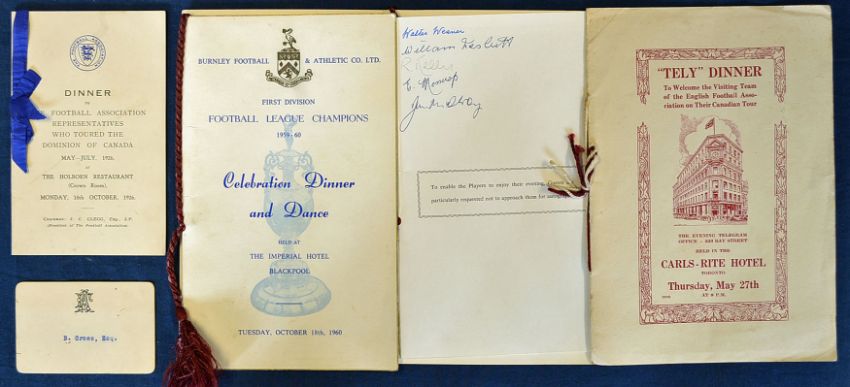 THE FOOTBALL ASSOCIATION
DINNER
TO
FOOTBALL ASSOCIATION
REPRESENTATIVES
WHO TOURED THE
DOMINION OF CANADA
MAY-JULY, 1926,
AT
THE HOLBORN RESTAURANT
(Crown Room),
MONDAY, 18th OCTOBER, 1926.
Chairman: J. C. CLEGG, Esq., J.P.
(President of The Football Association).
B. Cross, Esq.
BURNLEY FOOTBALL & ATHLETIC CO. LTD.
FIRST DIVISION
FOOTBALL LEAGUE CHAMPIONS
1959-60
Celebration Dinner
and Dance
HELD AT
THE IMPERIAL HOTEL
BLACKPOOL
TUESDAY, OCTOBER 18th, 1960
Walter
William
To enable the Players to enjoy their evening,
particularly requested not to approach them for
"TELY" DINNER
To Welcome the Visiting Team
of the English Football Asso-
ciation on Their Canadian Tour
THE EVENING TELEGRAM
OFFICE - BAY STREET
HELD IN THE
CARLS-RITE HOTEL
TORONTO
Thursday, May 27th
AT 6 P.M.